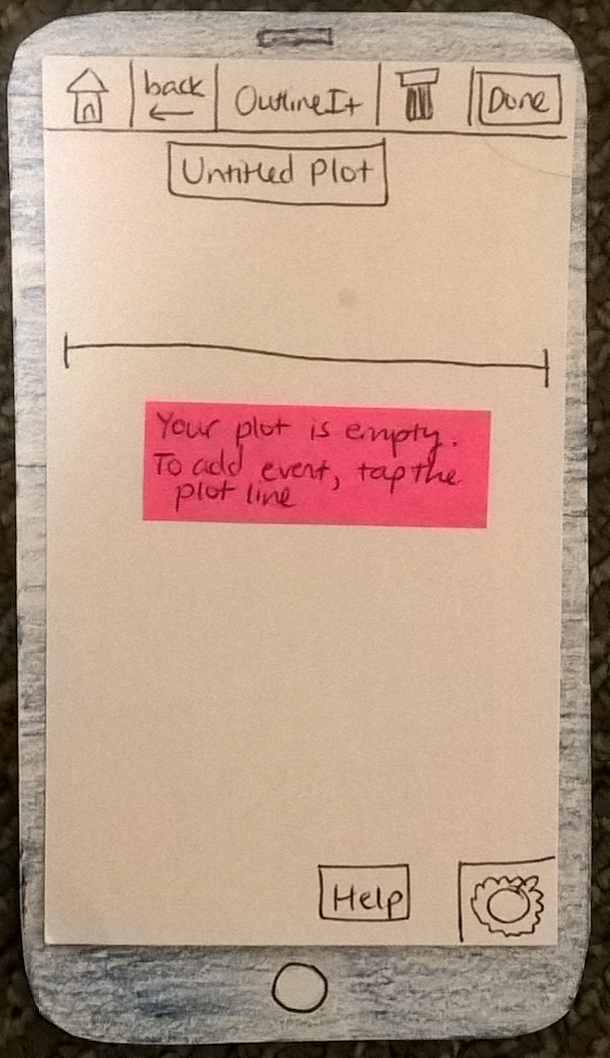 back
OutlineIt
Done
Untitled Plot
Your plot is empty.
To add event, tap the
plot line
Help